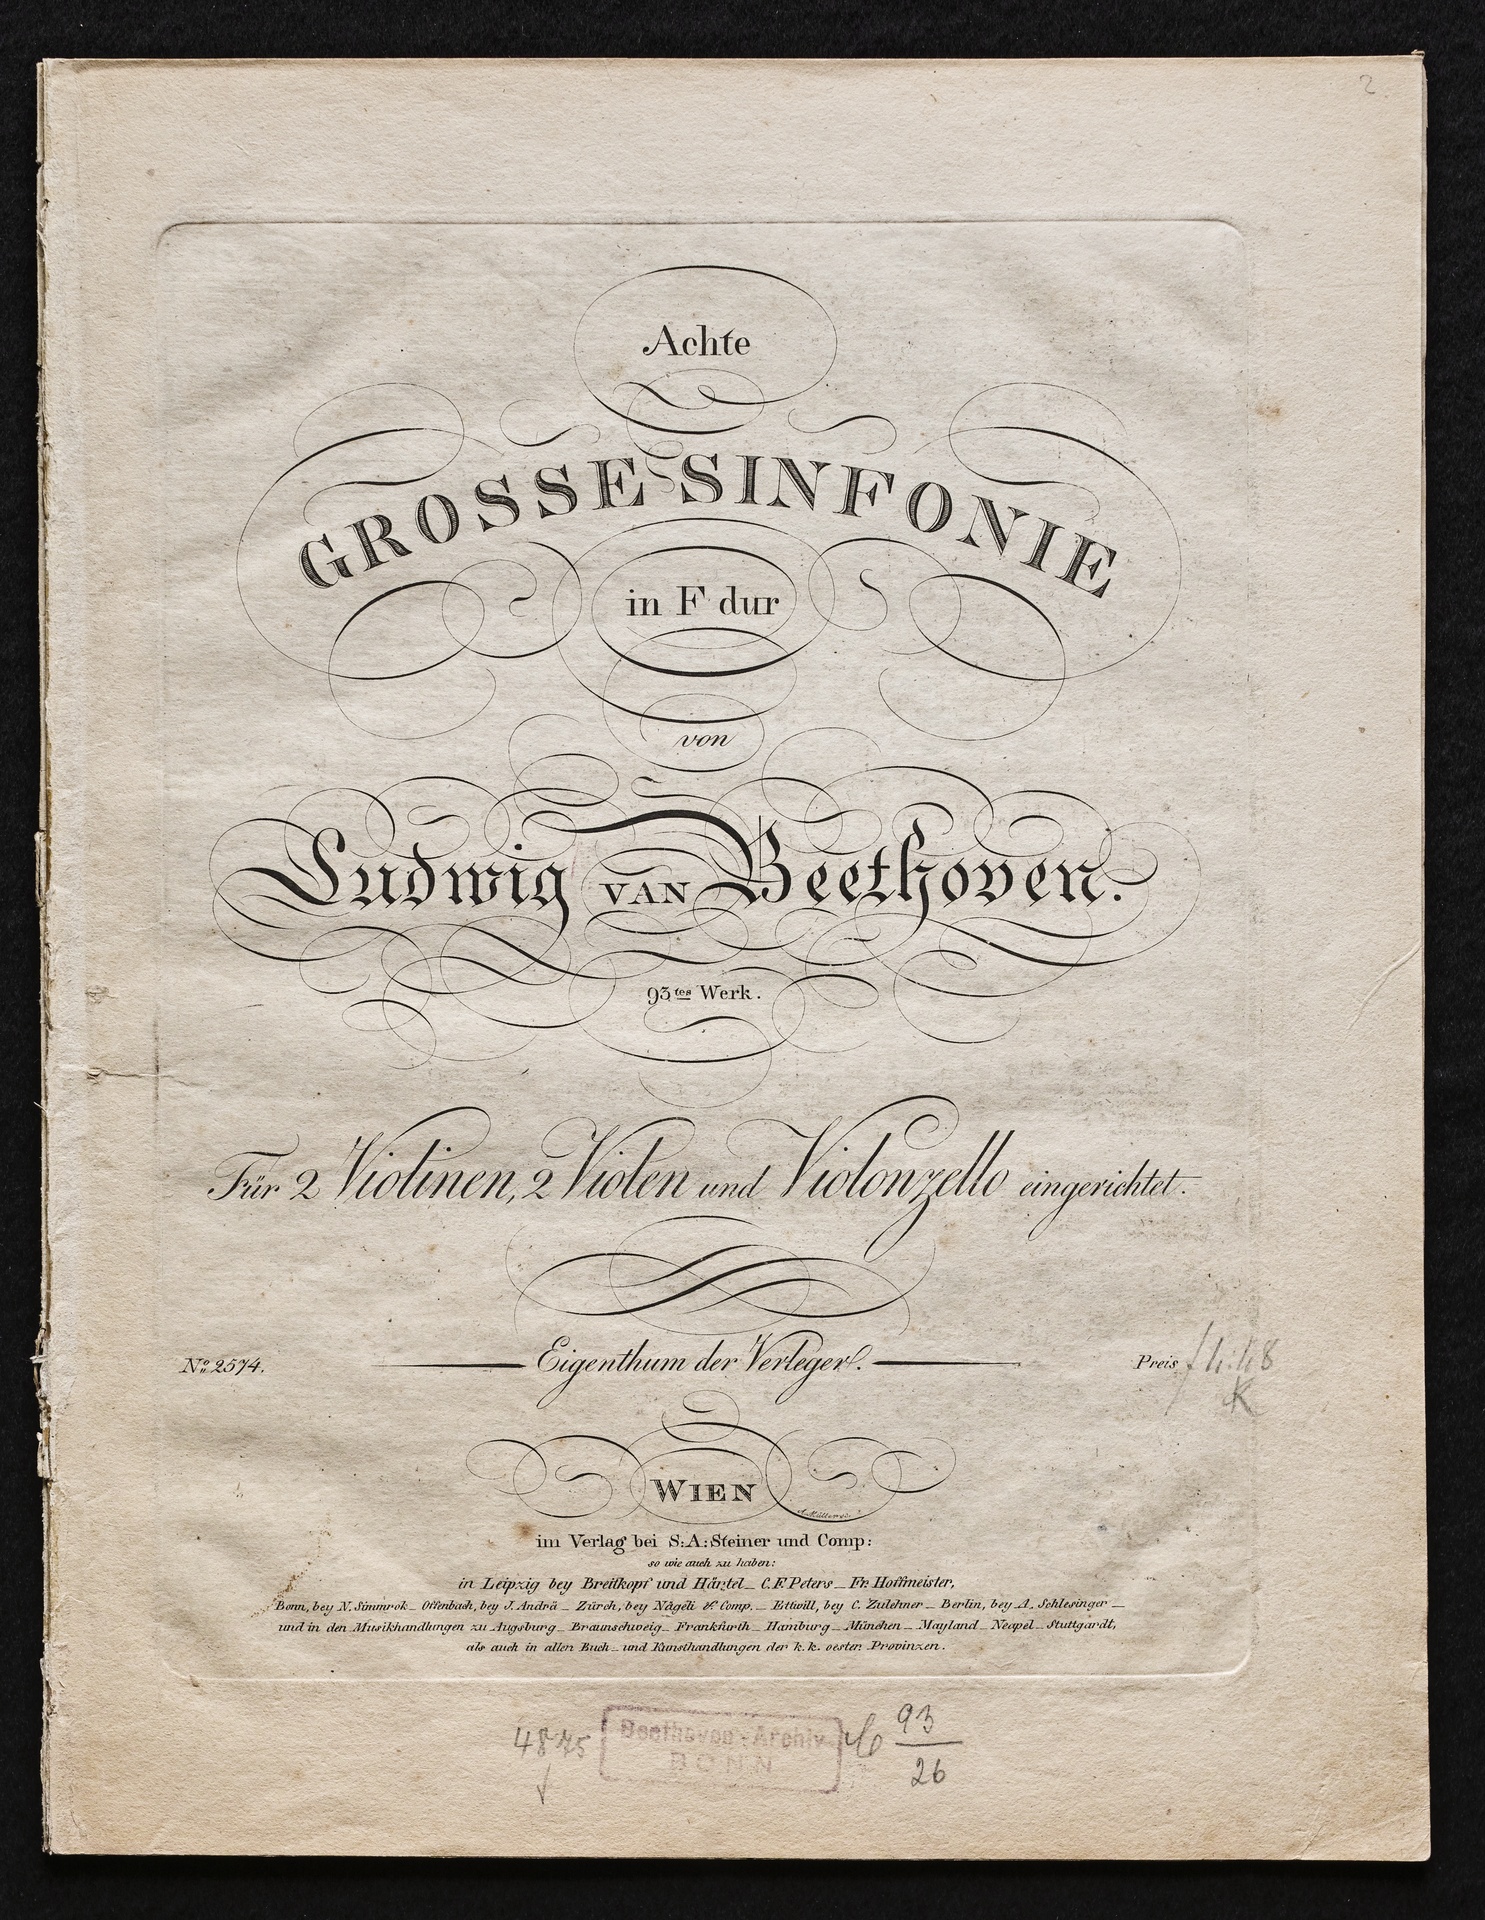 2.
Achte
GROSSE SINFONIE
in F dur
von
Ludwig VAN Beethoven.
93tes Werk.
Für 2 Violinen, 2 Violen und Violonzello eingerichtet.
No 2574. Eigenthum der Verleger. Preis f 4:48
K
WIEN
im Verlag bei S:A:Steiner und Comp:
so wie auch zu haben:
in Leipzig bey Breitkopf und Härtel_ C.F.Peters_ Fr. Hoffmeister,
Bonn, bey N. Simmrok_ Offenbach, bey J. Andrä_ Zürch, bey Nägeli & Comp._ Ettwill, bey C. Zulehner_ Berlin, bey A. Schlesinger_
und in den Musikhandlungen zu Augsburg_ Braunschweig_ Frankfurth_ Hamburg_ München_ Mayland_ Neapel_ Stuttgardt,
als auch in allen Buch_ und Kunsthandlungen der k.k. oester. Provinzen.
4875 Beethoven-Archiv C 93
BONN 26